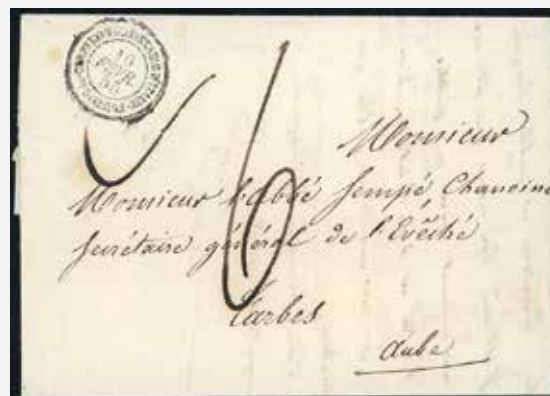 10
FEVR.
6
Monsieur
Monsieur l'Abbé Sempé, Chanoine
Secrétaire général de l'Evêché
Tarbes
Aube